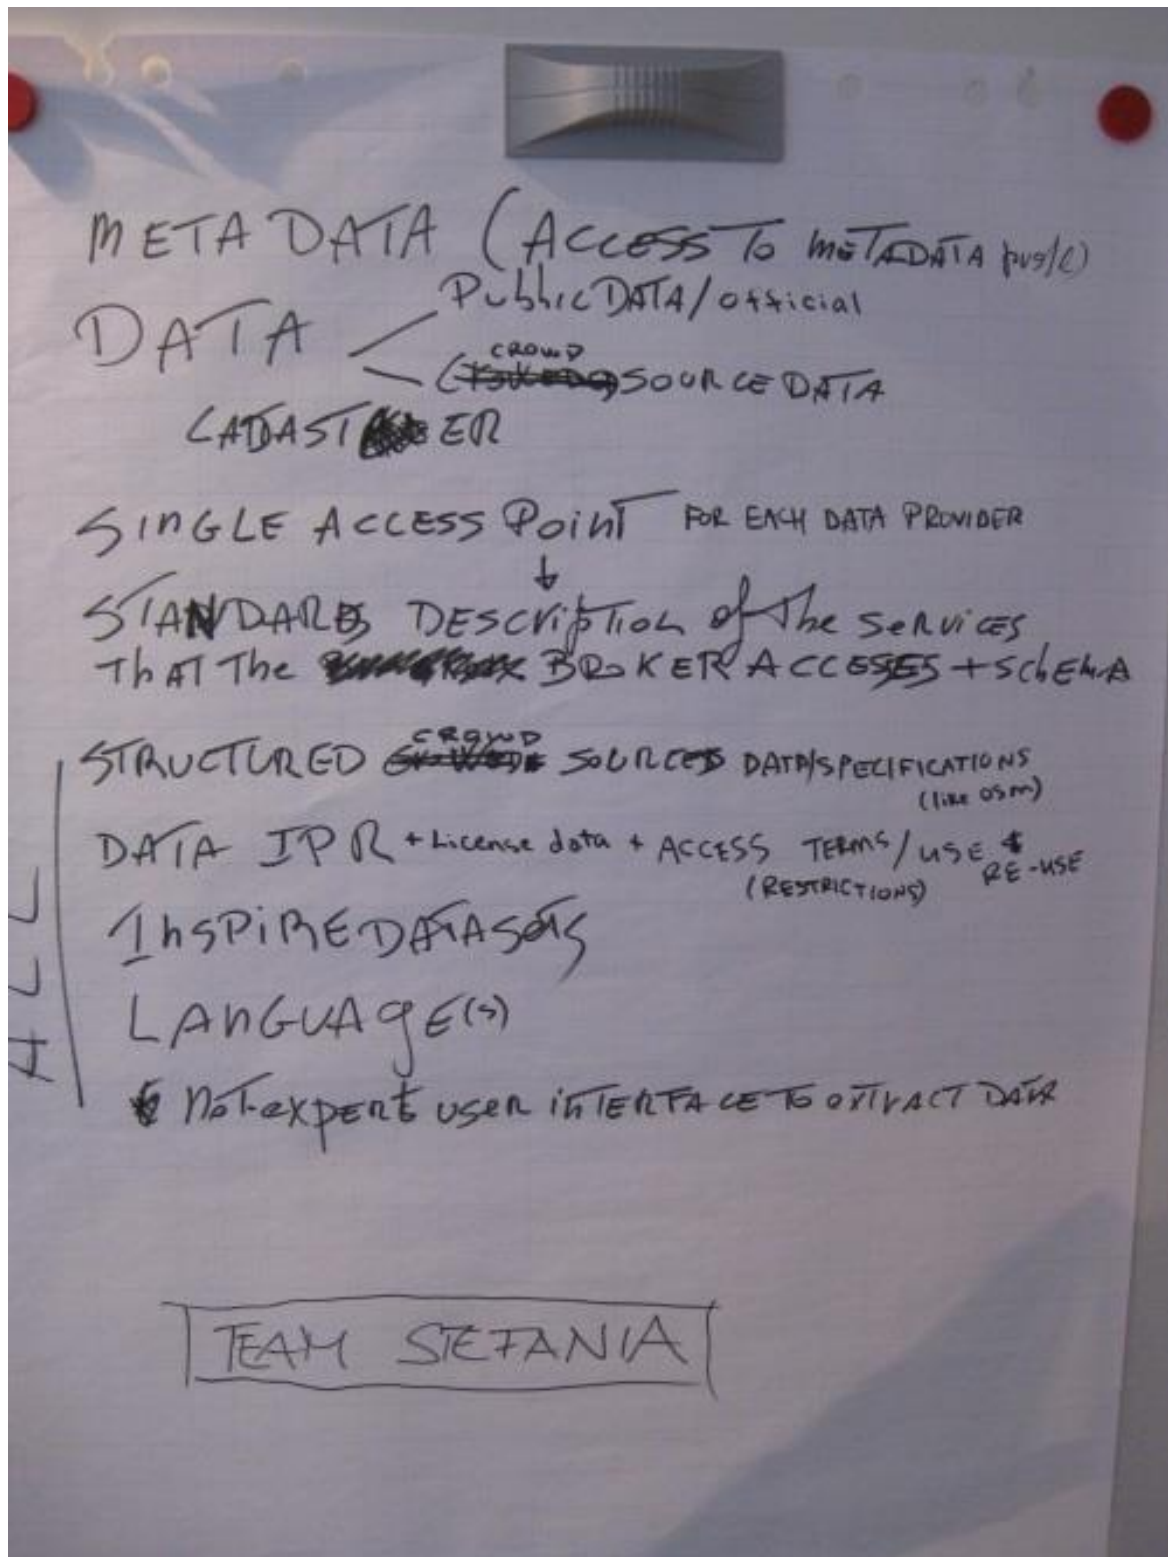 METADATA (ACCESS TO METADATA
PUBLIC DATA/official
DATA
CROWD
SOURCE DATA
CADASTER
SINGLE ACCESS POINT FOR EACH DATA PROVIDER
↓
STANDARD DESCRIPTION of The SERVICES
THAT The BROKER ACCESSES + SCHEMA
CROWD
STRUCTURED SOURCES DATA/SPECIFICATIONS
(like OSM)
DATA IPR + License data + ACCESS TERMS/USE &
(RESTRICTIONS) RE-USE
INSPIRE DATASETS
LANGUAGE(S)
NOT-expert USER INTERFACE TO EXTRACT DATA
ALL
TEAM STEFANIA